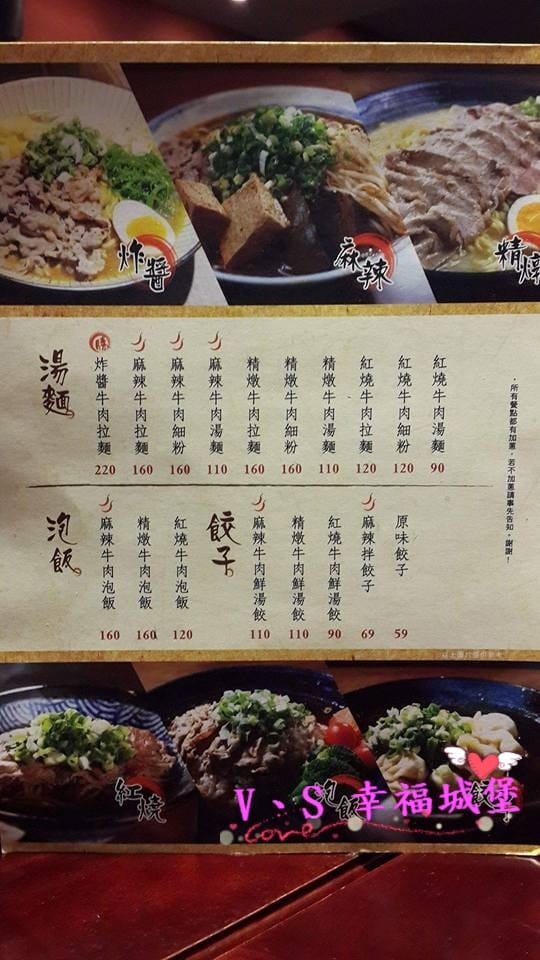 炸醬
麻辣
精燉
湯麵
紅燒牛肉湯麵
90
紅燒牛肉細粉
120
紅燒牛肉拉麵
120
精燉牛肉湯麵
110
精燉牛肉細粉
160
精燉牛肉拉麵
160
麻辣牛肉湯麵
110
麻辣牛肉細粉
160
麻辣牛肉拉麵
160
炸醬牛肉拉麵
220
·所有餐點都有加蔥,若不加蔥請事先告知,謝謝!
餃子
原味餃子
59
麻辣拌餃子
69
紅燒牛肉鮮湯餃
90
精燉牛肉鮮湯餃
110
麻辣牛肉鮮湯餃
110
泡飯
紅燒牛肉泡飯
120
精燉牛肉泡飯
160
麻辣牛肉泡飯
160
以上圖片僅供參考
紅燒
泡飯
V、S 幸福城堡